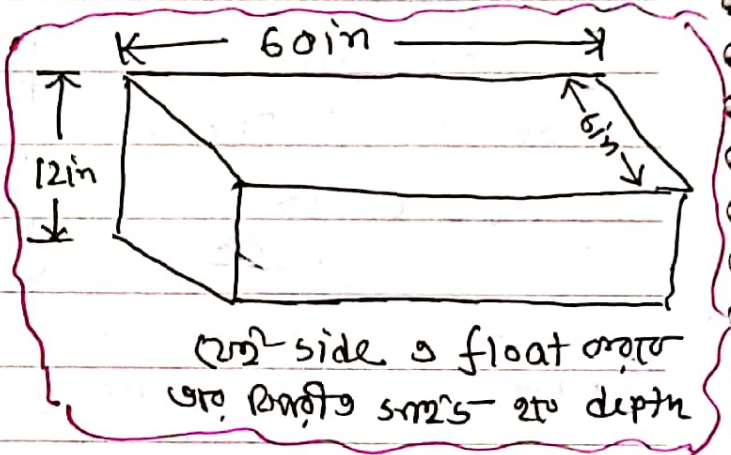 60in
12in
6in
যেই side এ float করবে
তার বিপরীত side হবে depth